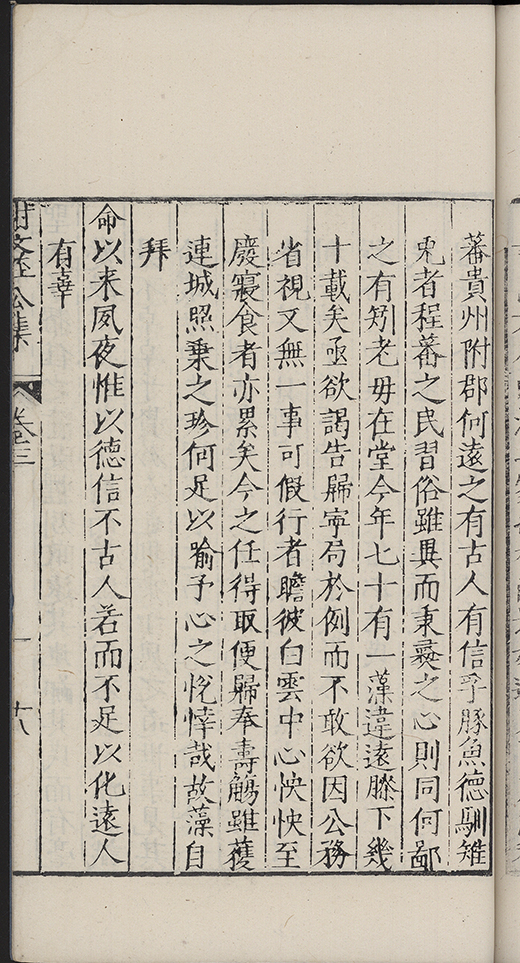 蕃貴州附郡何遠之有古人有信乎豚魚德馴雉
兎者程蕃之民習俗雖異而秉彜之心則同何鄙
之有矧老母在堂今年七十有一藻違遠膝下幾
十載矣亟欲謁告歸寧局於例而不敢欲因公務
省視又無一事可假行者瞻彼白雲中心怏怏至
廢寢食者亦累矣今之任得取便歸奉壽觴雖獲
連城照乗之珍何足以喻予心之悅懌哉故藻自
拜
命以来夙夜惟以德信不古人若而不足以化遠人
有辜
公集
卷三
十八